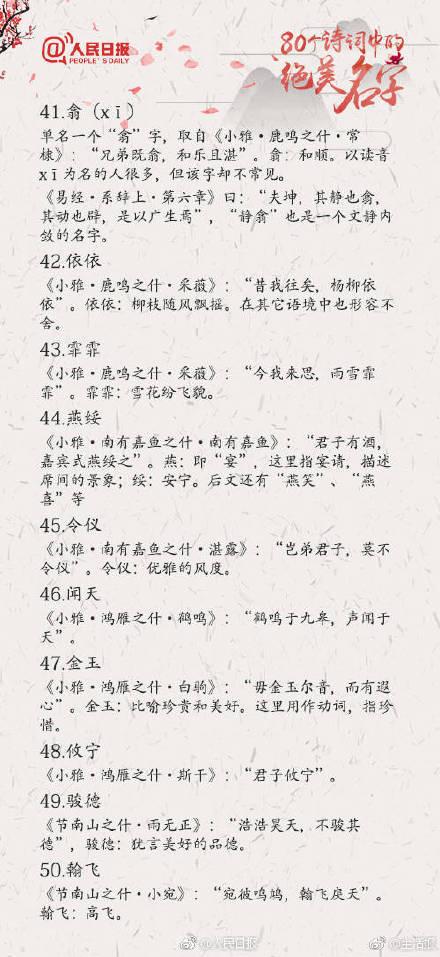 @人民日报
PEOPLE'S DAILY
80个诗词中的
绝美名字
41.翕（xī）
单名一个“翕”字，取自《小雅·鹿鸣之什·常
棣》：“兄弟既翕，和乐且湛”。翕：和顺。以读音
xī为名的人很多，但该字却不常见。
《易经·系辞上·第六章》曰：“夫坤，其静也翕，
其动也辟，是以广生焉”，“静翕”也是一个文静内
敛的名字。
42.依依
《小雅·鹿鸣之什·采薇》：“昔我往矣，杨柳依
依”。依依：柳枝随风飘摇。在其它语境中也形容不
舍。
43.霏霏
《小雅·鹿鸣之什·采薇》：“今我来思，雨雪霏
霏”。霏霏：雪花纷飞貌。
44.燕绥
《小雅·南有嘉鱼之什·南有嘉鱼》：“君子有酒，
嘉宾式燕绥之”。燕：即“宴”，这里指宴请，描述
席间的景象；绥：安宁。后文还有“燕笑”、“燕
喜”等
45.令仪
《小雅·南有嘉鱼之什·湛露》：“岂弟君子，莫不
令仪”。令仪：优雅的风度。
46.闻天
《小雅·鸿雁之什·鹤鸣》：“鹤鸣于九皋，声闻于
天”。
47.金玉
《小雅·鸿雁之什·白驹》：“毋金玉尔音，而有遐
心”。金玉：比喻珍贵和美好。这里用作动词，指珍
惜。
48.攸宁
《小雅·鸿雁之什·斯干》：“君子攸宁”。
49.骏德
《节南山之什·雨无正》：“浩浩昊天，不骏其
德”，骏德：犹言美好的品德。
50.翰飞
《节南山之什·小宛》：“宛彼鸣鸠，翰飞戾天”。
翰飞：高飞。
@人民日报
@生活报